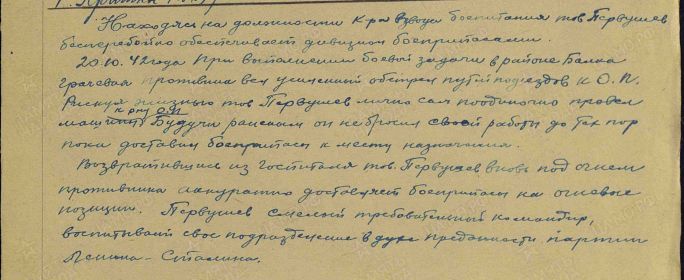 Находясь на должности К-ра взвода боепитания тов Первушев
бесперебойно обеспечивает дивизион боеприпасами.
20.10.42 года при выполнении боевой задачи в районе Балка
Грачевая противник вел усиленный обстрел путей подъездов к О.П.
Рискуя жизнью тов Первушев лично сам поодиночно провел
машины к рну ОП. Будучи раненым он не бросил своей работы до тех пор
пока доставил боеприпасы к месту назначения.
Возвратившись из госпиталя тов. Первушев вновь под огнем
противника аккуратно доставляет боеприпасы на огневые
позиции. Первушев смелый требовательный командир,
воспитывает свое подразделение в духе преданности партии
Ленина-Сталина.